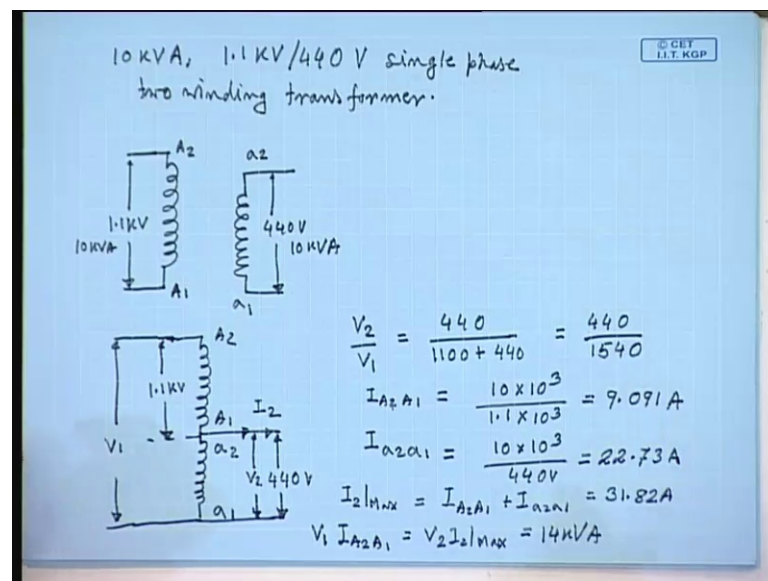 10 KVA, 1.1 KV/440 V single phase
two winding transformer.
© CET
I.I.T. KGP
A2
a2
1.1KV
10KVA
440V
10KVA
A1
a1
A2
1.1KV
A1
I2
V1
a2
V2 440V
a1
V2/V1 = 440/(1100 + 440) = 440/1540
I A2A1 = 10 × 10^3/1.1 × 10^3 = 9.091 A
I a2a1 = 10 × 10^3/440V = 22.73 A
I2|Max = I A2A1 + I a2a1 = 31.82A
V1 I A2A1 = V2 I2|Max = 14KVA